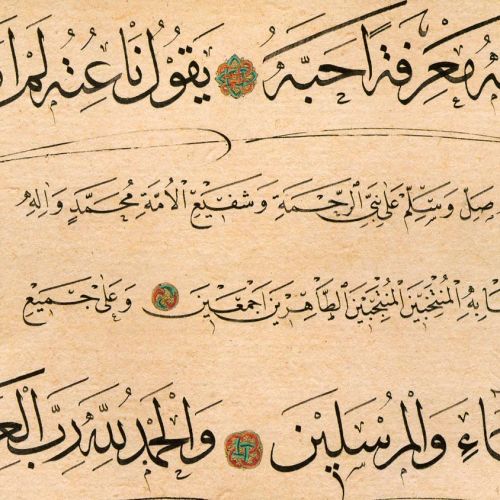 معرفةً احبهُ يقول ناعتهُ لم
صل وسلم على نبي الرحمة وشفيع الامة محمدٍ واله
المنتخبين المنتجبين الطاهرين اجمعين وعلى جميع
والمرسلين والحمد لله رب